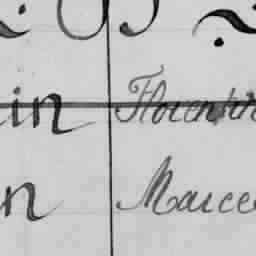 in Florentin
n Marce